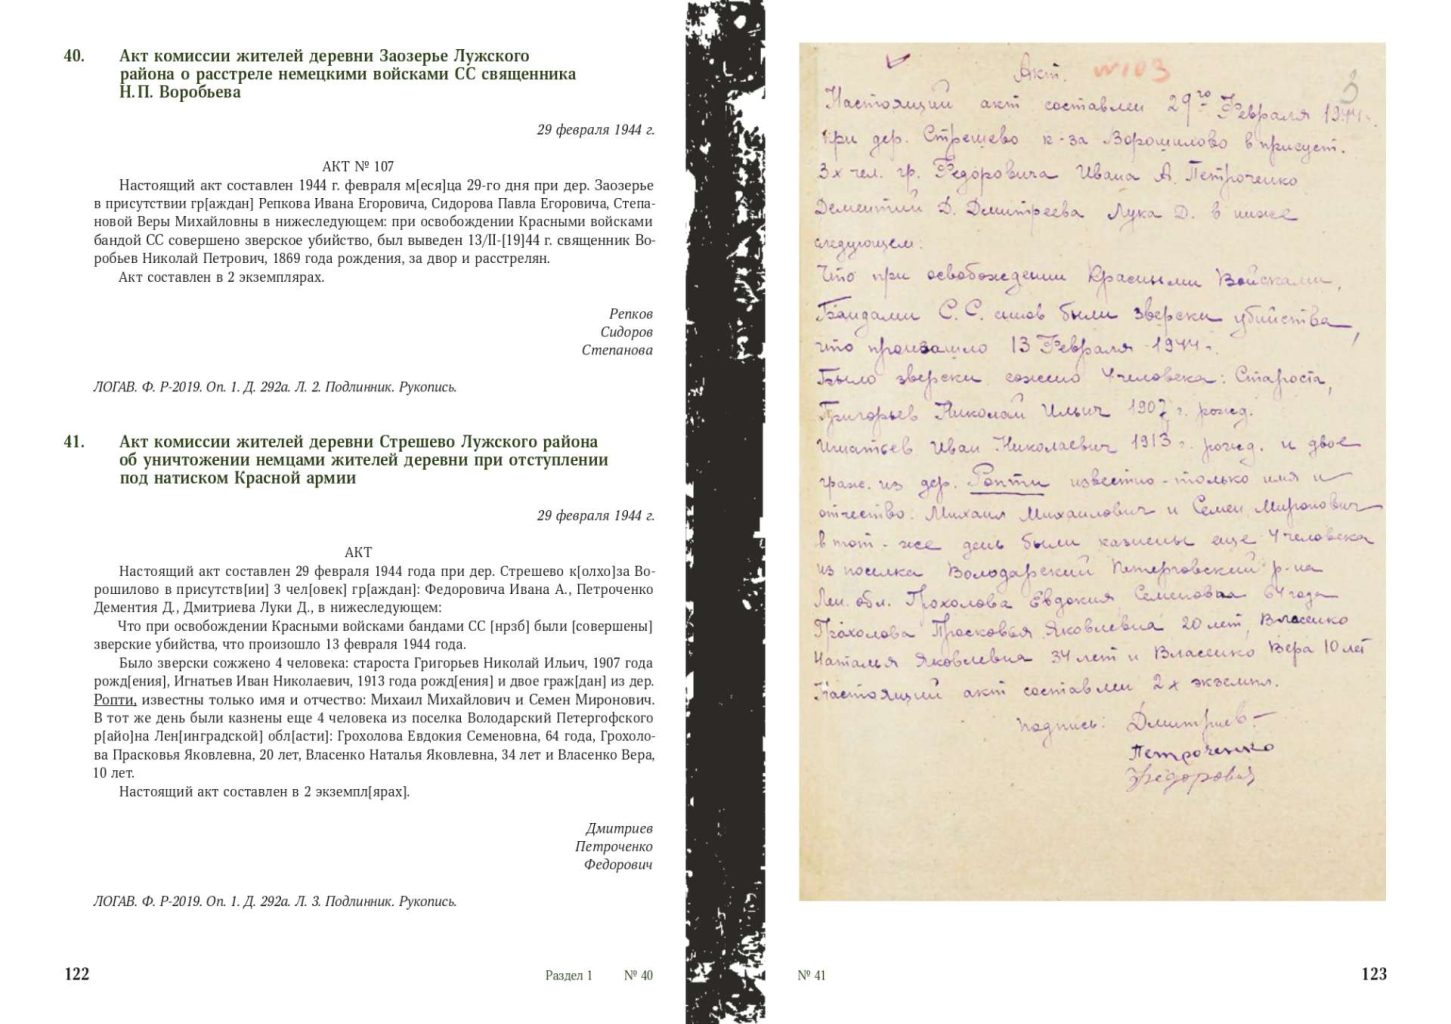 40. Акт комиссии жителей деревни Заозерье Лужского
района о расстреле немецкими войсками СС священника
Н. П. Воробьева
29 февраля 1944 г.
АКТ № 107
Настоящий акт составлен 1944 г. февраля м[еся]ца 29-го дня при дер. Заозерье
в присутствии гр[аждан] Репкова Ивана Егоровича, Сидорова Павла Егоровича, Степа-
новой Веры Михайловны в нижеследующем: при освобождении Красными войсками
бандой СС совершено зверское убийство, был выведен 13/II-[19]44 г. священник Во-
робьев Николай Петрович, 1869 года рождения, за двор и расстрелян.
Акт составлен в 2 экземплярах.
Репков
Сидоров
Степанова
ЛОГАВ. Ф. Р-2019. Оп. 1. Д. 292а. Л. 2. Подлинник. Рукопись.
41. Акт комиссии жителей деревни Стрешево Лужского района
об уничтожении немцами жителей деревни при отступлении
под натиском Красной армии
29 февраля 1944 г.
АКТ
Настоящий акт составлен 29 февраля 1944 года при дер. Стрешево к[олхо]за Во-
рошилово в присутств[ии] 3 чел[овек] гр[аждан]: Федоровича Ивана А., Петроченко
Дементия Д., Дмитриева Луки Д., в нижеследующем:
Что при освобождении Красными войсками бандами СС [нрзб] были [совершены]
зверские убийства, что произошло 13 февраля 1944 года.
Было зверски сожжено 4 человека: староста Григорьев Николай Ильич, 1907 года
рожд[ения], Игнатьев Иван Николаевич, 1913 года рожд[ения] и двое граж[дан] из дер.
Ропти, известны только имя и отчество: Михаил Михайлович и Семен Миронович.
В тот же день были казнены еще 4 человека из поселка Володарский Петергофского
р[айо]на Лен[инградской] обл[асти]: Грохолова Евдокия Семеновна, 64 года, Грохоло-
ва Прасковья Яковлевна, 20 лет, Власенко Наталья Яковлевна, 34 лет и Власенко Вера,
10 лет.
Настоящий акт составлен в 2 экземпл[ярах].
Дмитриев
Петроченко
Федорович
ЛОГАВ. Ф. Р-2019. Оп. 1. Д. 292а. Л. 3. Подлинник. Рукопись.
122
Раздел 1 № 40
Акт. №103
3
Настоящий акт составлен 29го Февраля 1944г.
при дер. Стрешево к-за Ворошилово в присуст.
3х чел. гр. Федоровича Ивана А. Петроченко
Дементий Д. Дмитреева Лука Д. в ниже
следующем:
Что при освобождении Красными Войсками,
Бандами С.С. были зверски убийства,
что произашло 13 Февраля 1944г.
Было зверски сожено 4 человека: Староста,
Григорьев Николай Ильич 1907 г. рожд.
Игнатьев Иван Николаевич 1913 г. рожд. и двое
граж. из дер. Ропти известно только имя и
отчество: Михаил Михаилович и Семен Миронович
в тот-же день были казнены еще 4 человека
из поселка Володарский Петерговский р-на
Лен. обл. Грохолова Евдокия Семеновна 64 года
Грохолова Просковья Яковлевна 20 лет, Власенко
Наталья Яковлевна 34 лет и Власенко Вера 10 лет
Настоящий акт составлен 2х экземпл.
подпись: Дмитриев
Петроченко
Федорович
№ 41
123